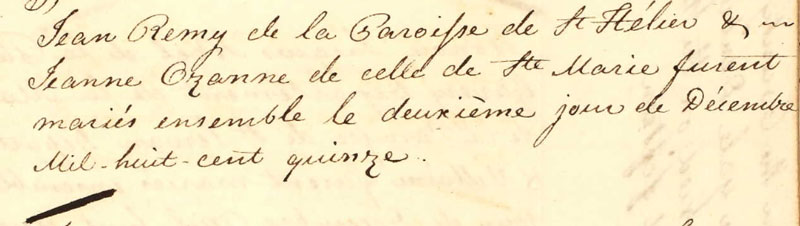 Jean Remy de la Paroisse de St Hélier &
Jeanne Ozanne de celle de Ste Marie furent
mariés ensemble le deuxième jour de Décembre
Mil-huit-cent quinze.